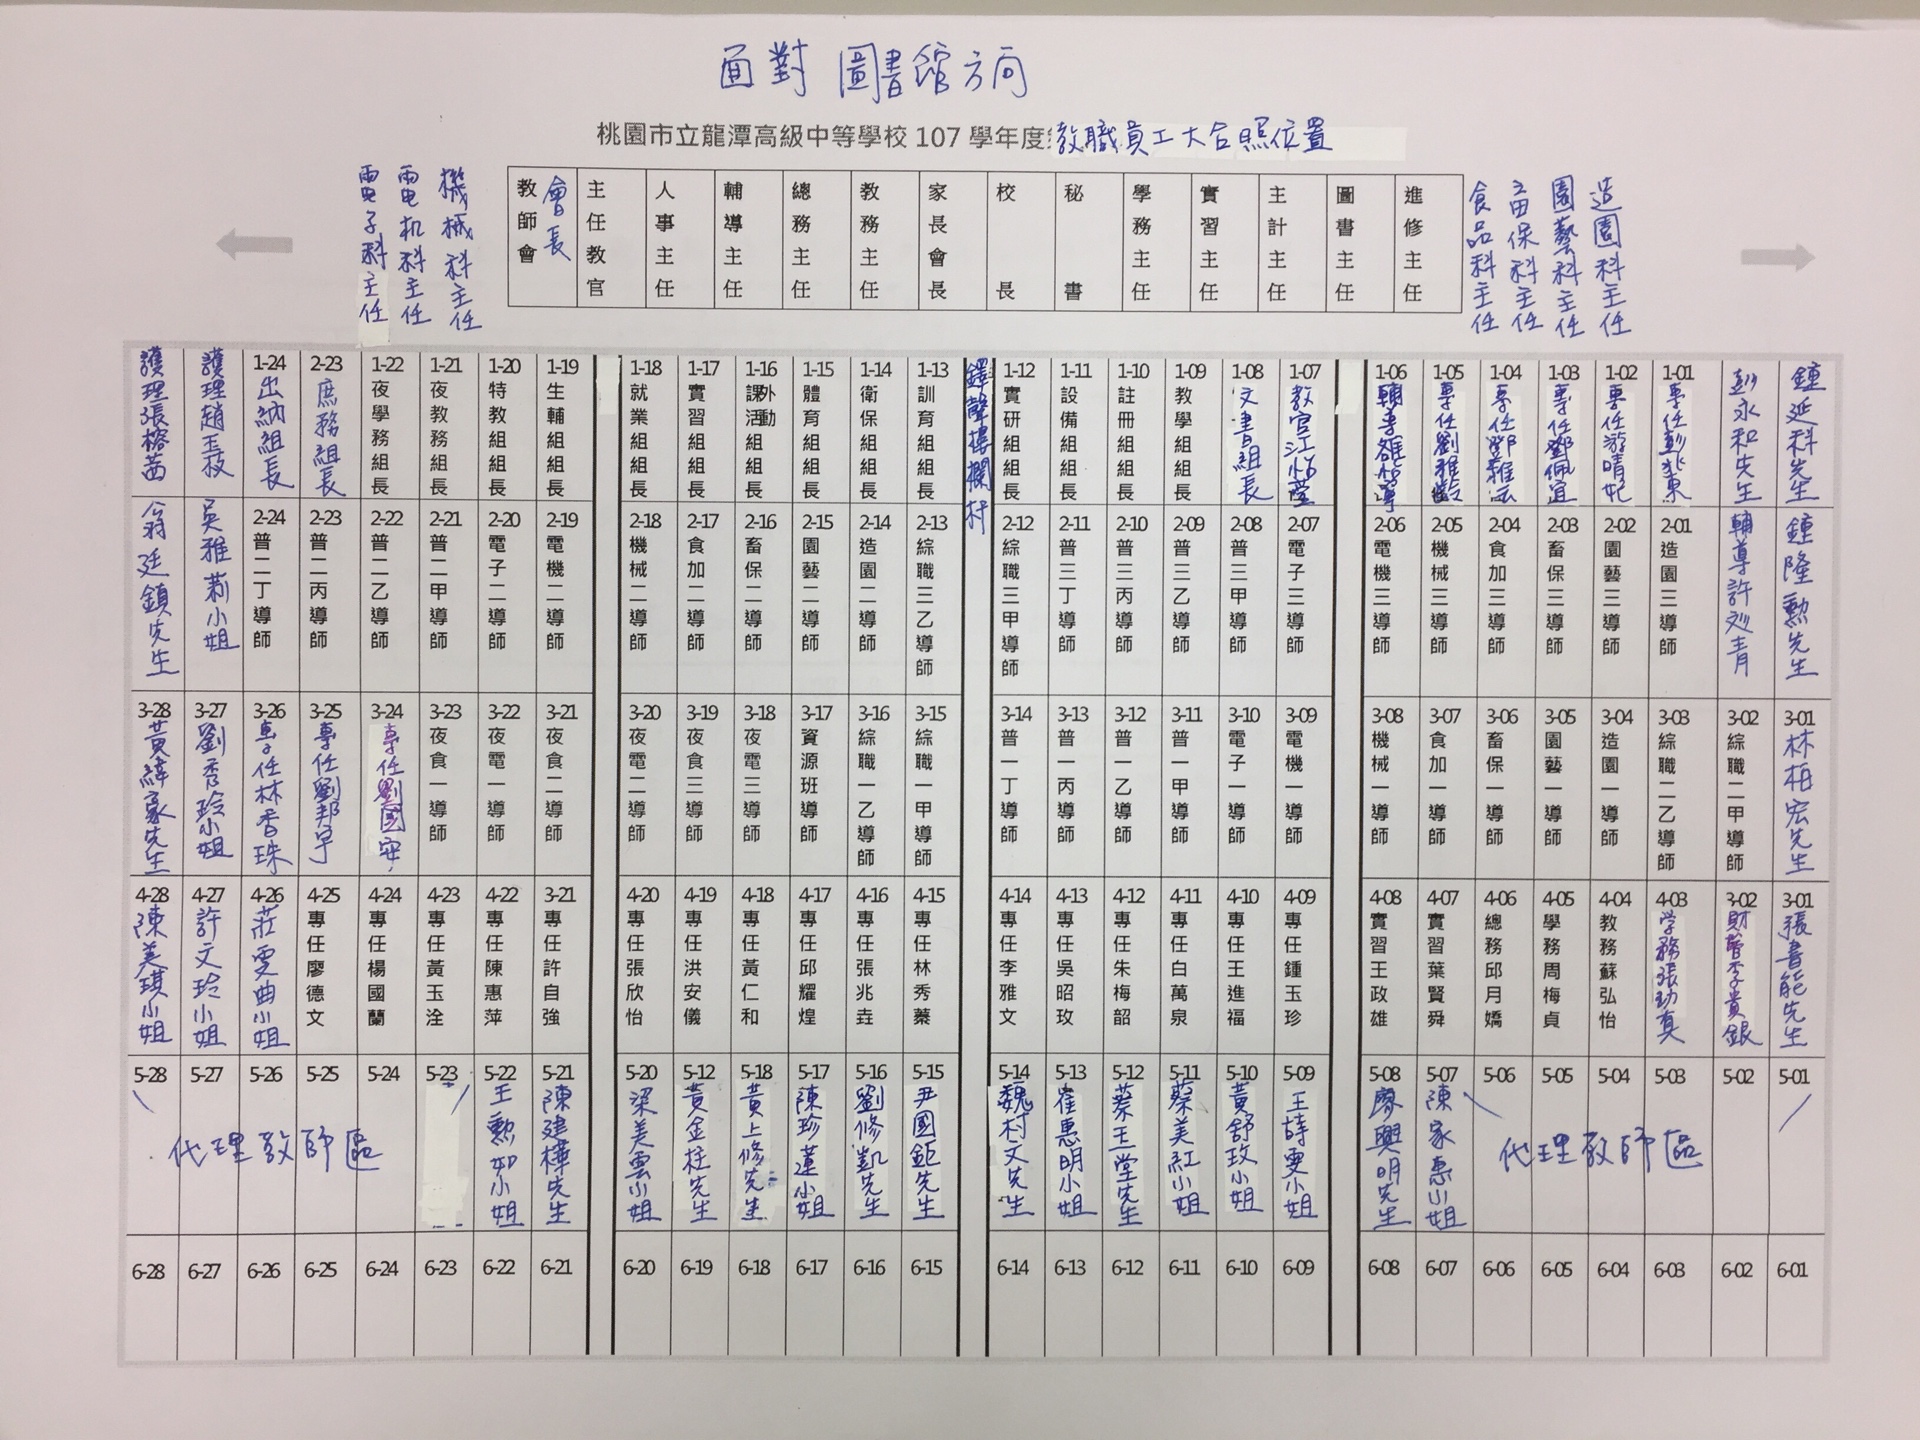 面對 圖書館方向
桃園市立龍潭高級中等學校 107 學年度教職員工大合照位置
電子科主任 電机科主任 機械科主任 教師會會長 主任教官 人事主任 輔導主任 總務主任 教務主任 家長會長 校長 秘書 學務主任 實習主任 主計主任 圖書主任 進修主任 食品科主任 畜保科主任 園藝科主任 造園科主任
護理張榕茜 護理趙玉枝 1-24 出納組長 2-23 庶務組長 1-22 夜學務組長 1-21 夜教務組長 1-20 特教組長 1-19 生輔組長 1-18 就業組長 1-17 實習組長 1-16 課外活動組長 1-15 體育組長 1-14 衛保組長 1-13 訓育組長 1-12 實研組長 1-11 設備組長 1-10 註冊組長 1-09 教學組長 1-08 文書組長 1-07 教官江 1-06 輔導 1-05 專任劉雅齡 1-04 專任鄧雅云 1-03 專任鄧佩宜 1-02 專任游晴妃 1-01 專任彭 彭永和先生 鍾延科先生
翁廷鎮先生 吳雅莉小姐 2-24 普二丁導師 2-23 普二丙導師 2-22 普二乙導師 2-21 普二甲導師 2-20 電子二導師 2-19 電機二導師 2-18 機械二導師 2-17 食加二導師 2-16 畜保二導師 2-15 園藝二導師 2-14 造園二導師 2-13 綜職三乙導師 2-12 綜職三甲導師 2-11 普三丁導師 2-10 普三丙導師 2-09 普三乙導師 2-08 普三甲導師 2-07 電子三導師 2-06 電機三導師 2-05 機械三導師 2-04 食加三導師 2-03 畜保三導師 2-02 園藝三導師 2-01 造園三導師 輔導許 青 鍾隆勳先生
3-28 黃緯豪先生 3-27 劉秀玲小姐 3-26 專任林香珠 3-25 專任劉邦宇 3-24 專任劉國安 3-23 夜食一導師 3-22 夜電一導師 3-21 夜食二導師 3-20 夜電二導師 3-19 夜食三導師 3-18 夜電三導師 3-17 資源班導師 3-16 綜職一乙導師 3-15 綜職一甲導師 3-14 普一丁導師 3-13 普一丙導師 3-12 普一乙導師 3-11 普一甲導師 3-10 電子一導師 3-09 電機一導師 3-08 機械一導師 3-07 食加一導師 3-06 畜保一導師 3-05 園藝一導師 3-04 造園一導師 3-03 綜職二乙導師 3-02 綜職二甲導師 3-01 林柏宏先生
4-28 陳美琪小姐 4-27 許文玲小姐 4-26 莊雯曲小姐 4-25 專任廖德文 4-24 專任楊國蘭 4-23 專任黃玉洤 4-22 專任陳惠萍 3-21 專任許自強 4-20 專任張欣怡 4-19 專任洪安儀 4-18 專任黃仁和 4-17 專任邱耀煌 4-16 專任張兆垚 4-15 專任林秀蓁 4-14 專任李雅文 4-13 專任吳昭玫 4-12 專任朱梅韶 4-11 專任白萬泉 4-10 專任王進福 4-09 專任鍾玉珍 4-08 實習王政雄 4-07 實習葉賢舜 4-06 總務邱月嬌 4-05 學務周梅貞 4-04 教務蘇弘怡 4-03 学務張幼真 3-02 財管李貴銀 3-01 張書能先生
5-28 5-27 5-26 5-25 5-24 5-23 代理教師區 5-22 王勳如小姐 5-21 陳建樺先生 5-20 梁美雲小姐 5-12 黃金柱先生 5-18 黃上修先生 5-17 陳珍蓮小姐 5-16 劉修凱先生 5-15 尹國鉅先生 5-14 魏村文先生 5-13 崔惠明小姐 5-12 蔡玉堂先生 5-11 蔡美紅小姐 5-10 黃舒玫小姐 5-09 王詩雯小姐 5-08 廖興明先生 5-07 陳家惠小姐 5-06 5-05 5-04 5-03 5-02 5-01 代理教師區
6-28 6-27 6-26 6-25 6-24 6-23 6-22 6-21 6-20 6-19 6-18 6-17 6-16 6-15 6-14 6-13 6-12 6-11 6-10 6-09 6-08 6-07 6-06 6-05 6-04 6-03 6-02 6-01